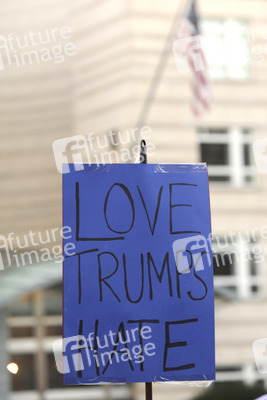 LOVE
TRUMPS
HATE
future
image
future
image
future
image
future
image
future
image
future
image